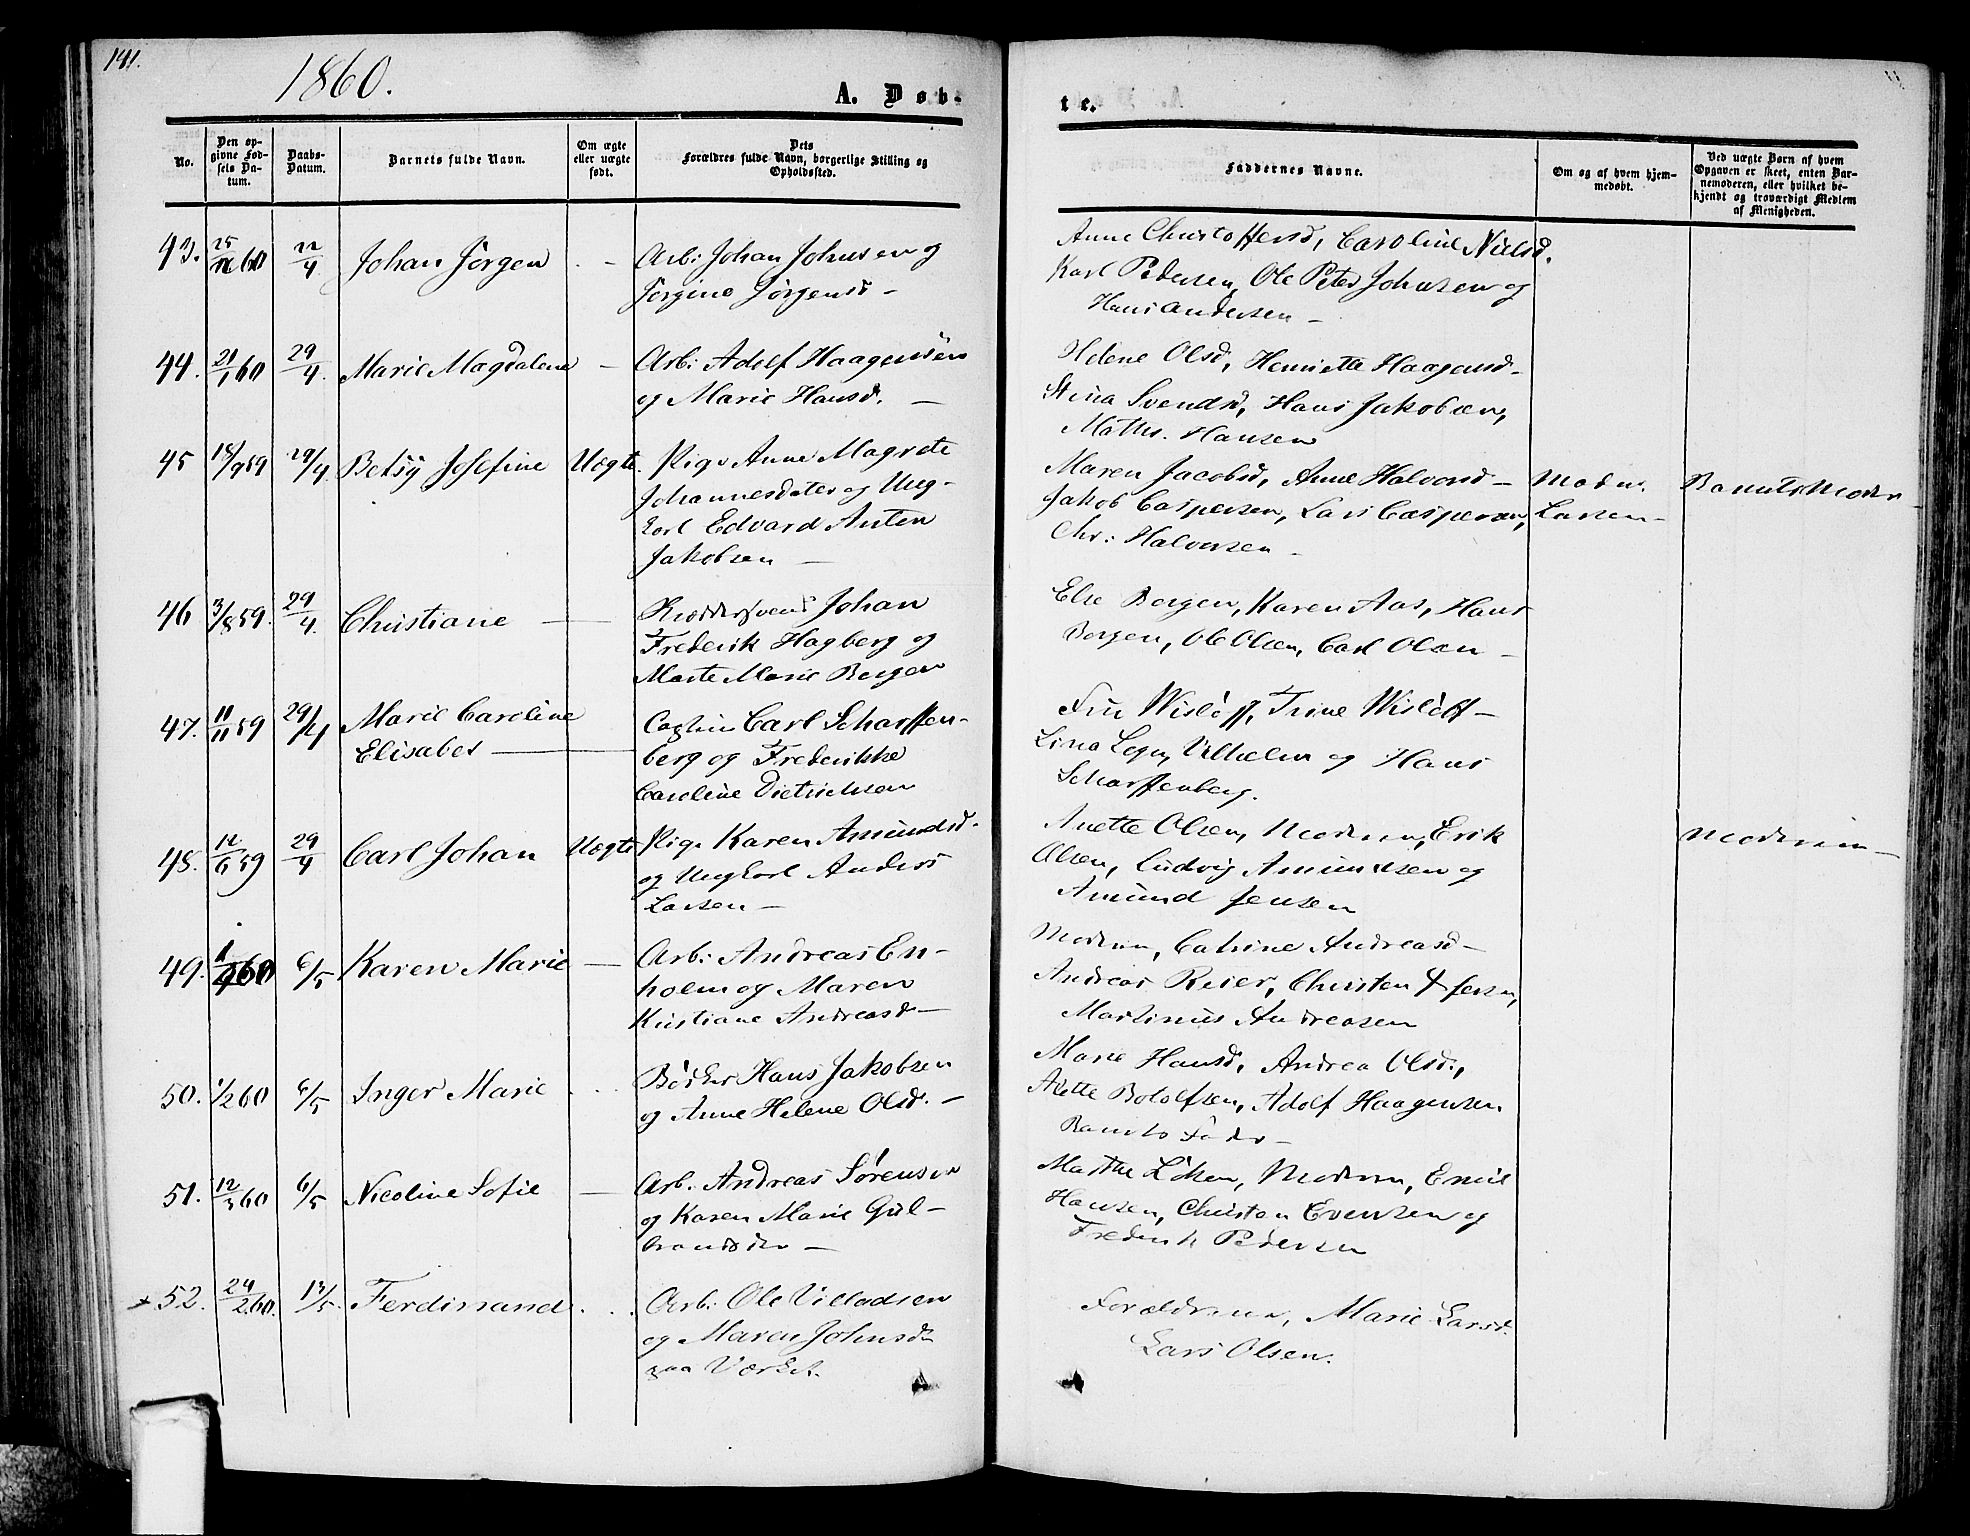 141.
1860.
A. Døb-
te.
No.
Den op-
givne Fød-
sels Da-
tum.
Daabs-
Datum.
Barnets fulde Navn.
Om ægte
eller uægte
født.
Dets
Forældres fulde Navn, borgerlige Stilling og
Opholdssted.
Faddernes Navne.
Om og af hvem hjem-
medøbt.
Ved uægte Børn af hvem
Opgaven er skeet, enten Bar-
nemoderen, eller hvilket be-
kjendt og troværdigt Medlem
af Menigheden.
43. 60 22/4 Johan Jörgen - Arb: Johan Johnsen og
Jörgine Jørgensd -
Anne Christoffersd, Caroline Nielsd.
Karl Pedersen, Ole Peter Johnsen og
Hans Andersen -
44. 21/1 60 29/4. Marie Magdalene - Arb: Adolf Haagensen
og Marie Hansd. -
Helene Olsd, Henriette Haagensd -
Stina Svendsd, Hans Jakobsen,
Maths. Hansen
45 18/9 59 29/4 Betsy Josefine Uægte. Pige Anne Magrete
Johannesdater og Ung-
karl Edvard Anton
Jakobsen -
Maren Jacobsd, Anne Halvorsd -
Jakob Caspersen, Lars Caspersen,
Chr: Halvorsen -
Larsen -
Barnets Moder
46 3/8 59. 29/4. Christiane - Johan
Frederik Hagberg og
Marte Marie Bergen
Else Bergen, Karen Aas, Hans
Bergen, Ole Olsen, Carl Olsen -
47. 11/11 59 29/4 Marie Caroline
Elisabet - Captein Carl Scharffen-
berg og Frederikke
Caroline Dietrichsen
Fru Wisløff, Trine Wisløff -
Lina , Vilhelm og Hans
Scharffenberg.
48. 12/6 59 29/4 Carl Johan Uægte Pige Karen Amundsd.
og Ungkarl Anders
Larsen -
Anette Olsen, Moderen, Erik
Olsen, Ludvig Amundsen og
Amund Jensen
Moderen -
49. 60 6/5 Karen Marie - Arb: Andreas En-
holm og Maren
Kristiane Andreasd -
Moderen, Catrine Andreasd -
Andreas Reier, Christen
Martinus Andreasen
50. 1/2 60 6/5 Inger Marie Bødker Hans Jakobsen
og Anne Helene Olsd. -
Marie Hansd, Andrea Olsd.,
Anette Botolfsen, Adolf Haagensen
Barnets Fader -
51. 12/3 60 6/5 Nicoline Sofie - Arb. Andreas Sørensen
og Karen Marie Gul-
brandsd -
Marthe Löken, Moderen, Emil
Hansen, Christen Evensen og
Frederik Pedersen
52. 24/2 60. 13/5. Ferdinand Arb: Ole Villadsen
og Maren Johnsd
paa Værket.
Forældrene, Marie Larsd.
Lars Olsen.